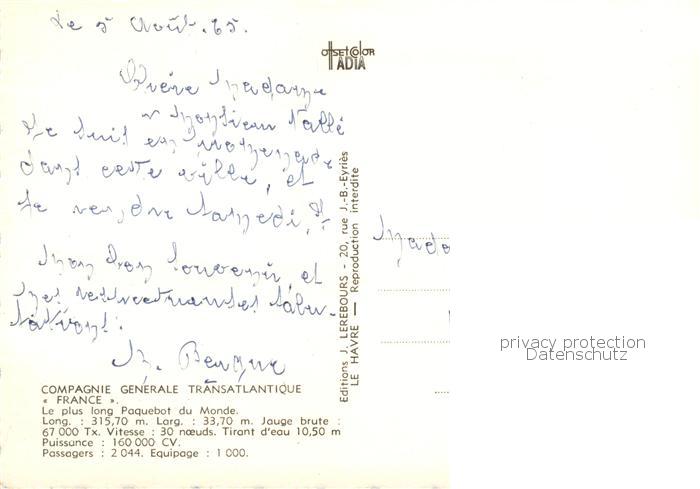 Le 5 Août. 65.
Chère Madame
Monsieur Vallé
Je suis en promenade
dans cette ville, et
je rendre samedi,
Mon bon souvenir, et
mes respectueuses salu-
tations.
M.
COMPAGNIE GENERALE TRANSATLANTIQUE
« FRANCE ».
Le plus long Paquebot du Monde.
Long. : 315,70 m. Larg. : 33,70 m. Jauge brute :
67 000 Tx. Vitesse : 30 nœuds. Tirant d'eau 10,50 m
Puissance : 160 000 CV.
Passagers : 2 044. Equipage : 1 000.
OFFSET COLOR
ADIA
Editions J. LEREBOURS - 20, rue J.-B.-Eyriès
LE HAVRE — Reproduction interdite
Mada
privacy protection
Datenschutz